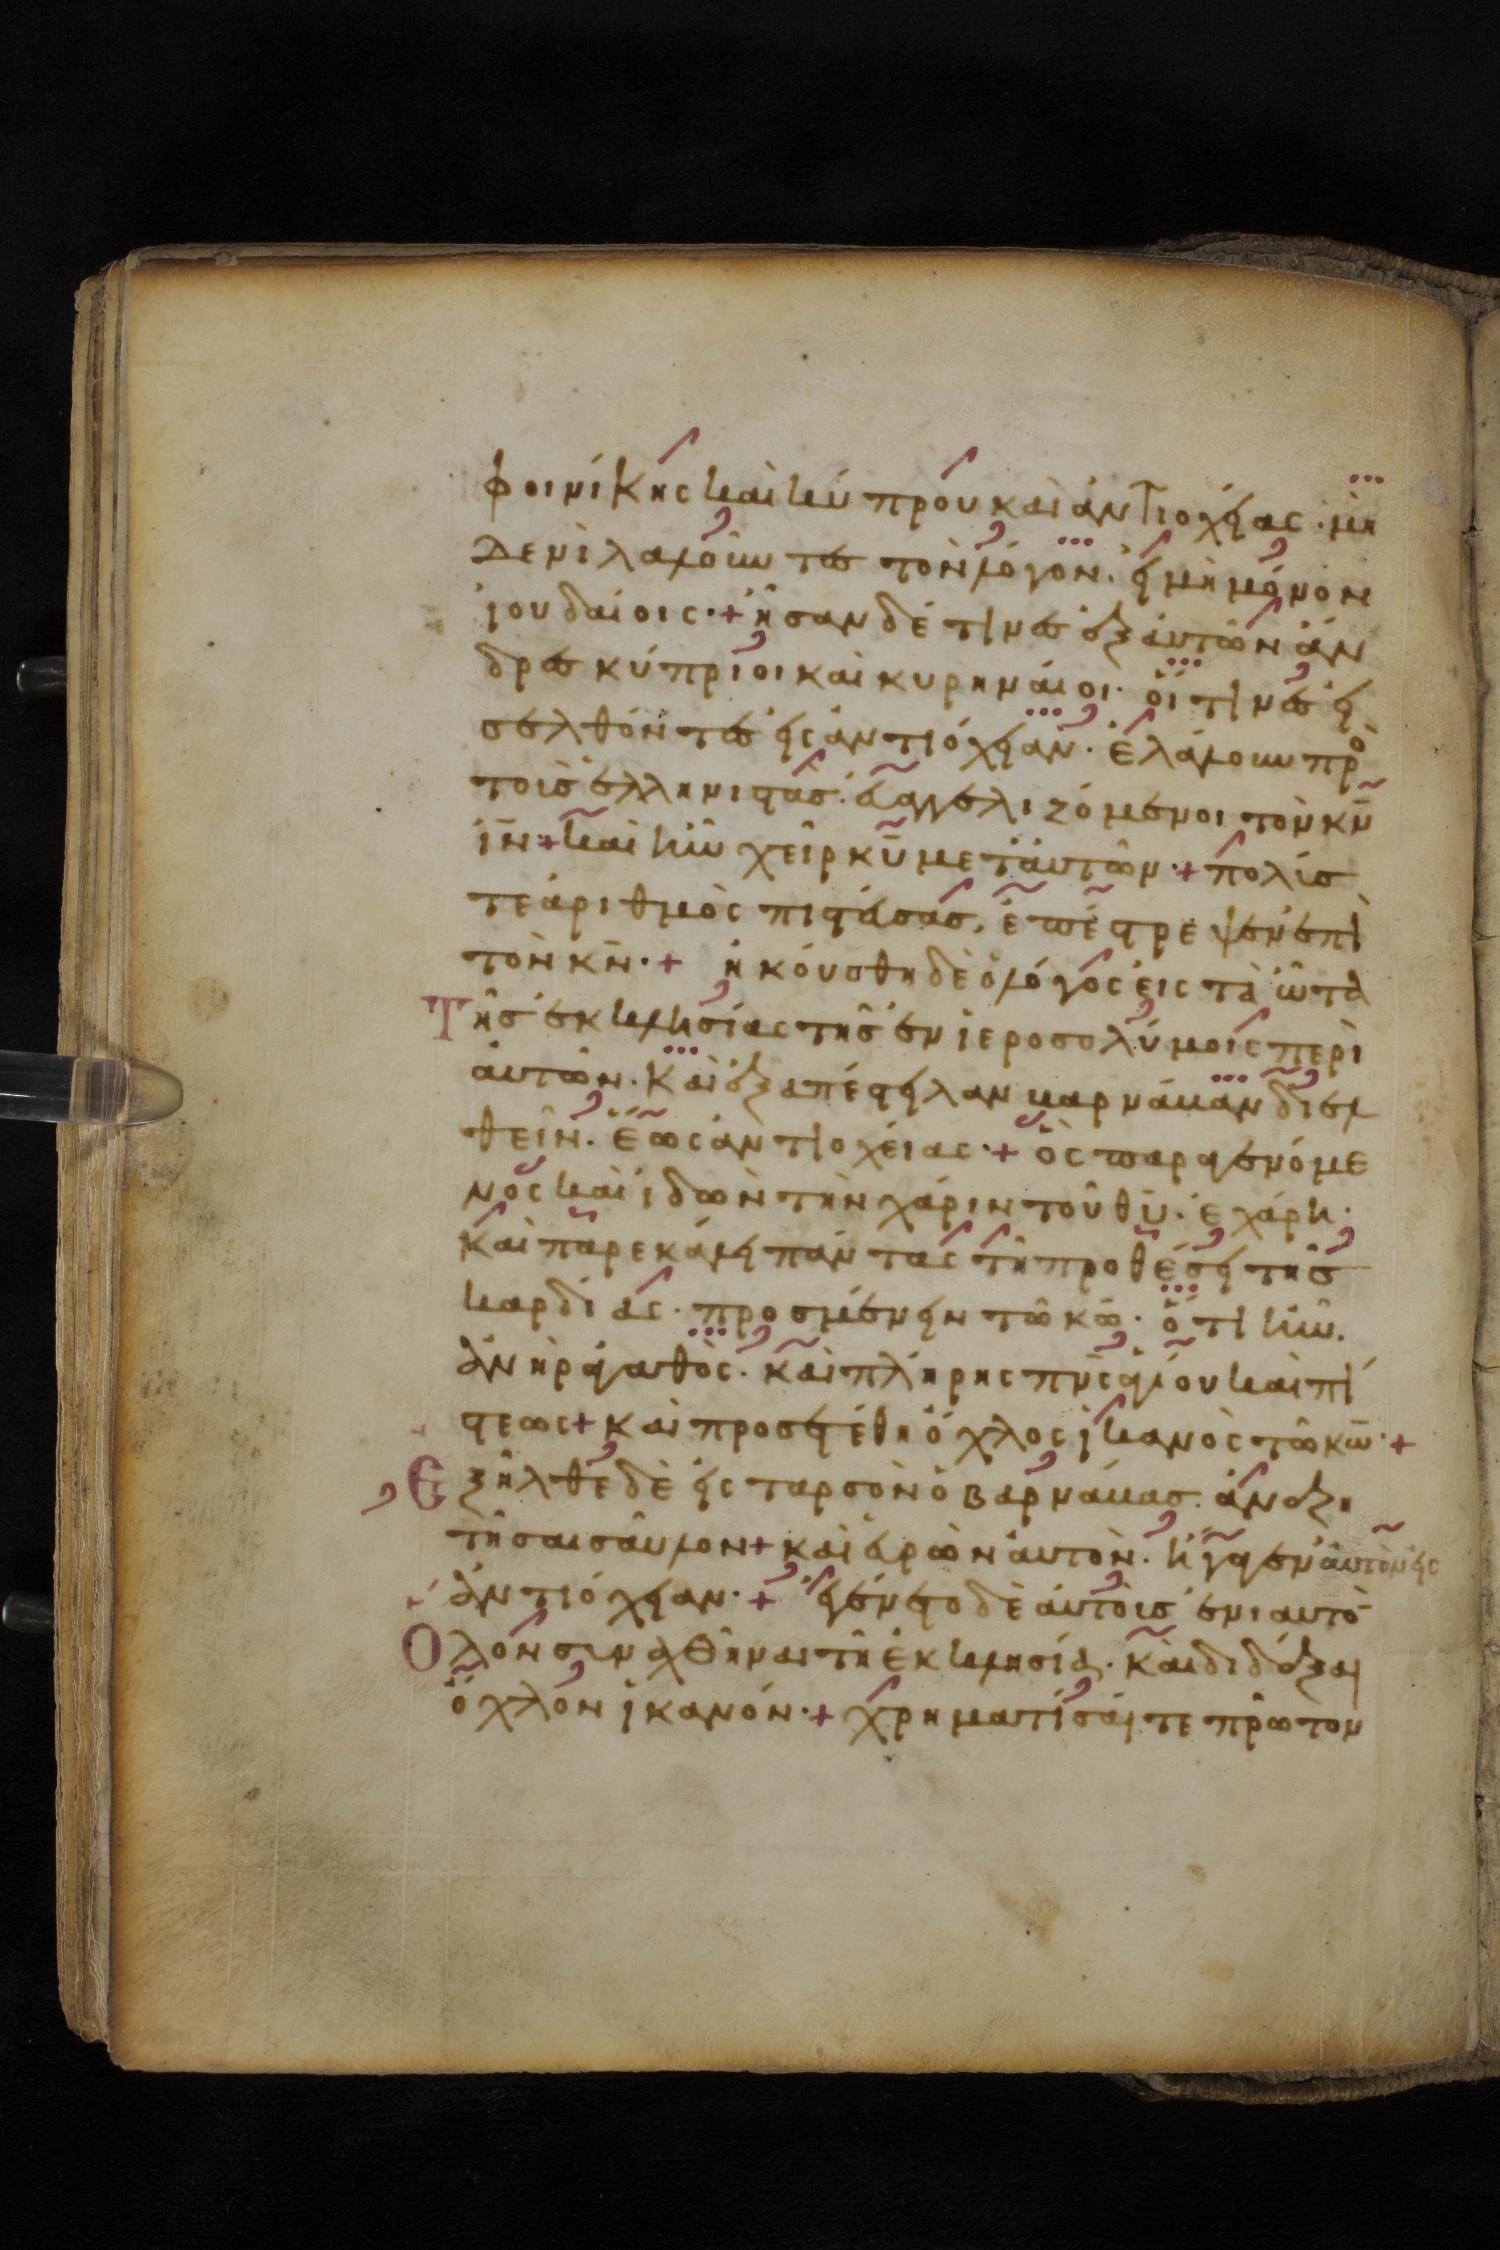 φοινίκης καὶ κύπρου καὶ ἀντιοχείας · μὴ
δενὶ λαλοῦντες τὸν λόγον · εἰ μὴ μόνον
ἰουδαίοις · + ἦσαν δέ τινες ἐξ αὐτῶν ἄν
δρες κύπριοι καὶ κυρηναίοι · οἵτινες εἰ
σελθόντες εἰς ἀντιόχειαν · ἐλάλουν πρὸ
τοὺς ἑλληνιστάς · εὐαγγελιζόμενοι τὸν κν̄
ιν̄ + καὶ ἦν χεὶρ κῡ μετ αὐτῶν · + πολύς
τε ἀριθμὸς πιστεύσας, ἐπέστρεψεν ἐπὶ
τὸν κν̄ · + ἠκούσθη δὲ ὁ λόγος εἰς τὰ ὦτα
Τῆς ἐκκλησίας τῆς ἐν ἱεροσολύμοις περὶ
αὐτῶν · καὶ ἐξαπέστειλαν βαρνάβαν διελ
θεῖν · ἕως ἀντιοχείας · + ὃς παραγενόμε
νος καὶ ἰδὼν τὴν χάριν τοῦ θῡ · ἐχάρη ·
καὶ παρεκάλει πάντας τῆ προθέσει τῆς
καρδίας · προσμένειν τῶ κω̄ · ὅτι ἦν ·
ἀνὴρ ἀγαθὸς · καὶ πλήρης πν̄ς ἁγίου καὶ πί
στεως + καὶ προσετέθη ὄχλος ἱκανὸς τῶ κω̄ · +
Ἐξῆλθε δὲ εἰς ταρσὸν ὁ βαρνάβας · ἀναζη
τῆσαι σαῦλον + καὶ εὑρὼν αὐτὸν · ἤγαγεν αὐτὸν εἰς
ἀντιόχειαν · + ἐγένετο δὲ αὐτοὺς ἐνιαυτὸ
Ὅλον συναχθῆναι τῆ ἐκκλησία · καὶ διδάξαι
ὄχλον ἱκανόν · + χρηματίσαι τε πρῶτον